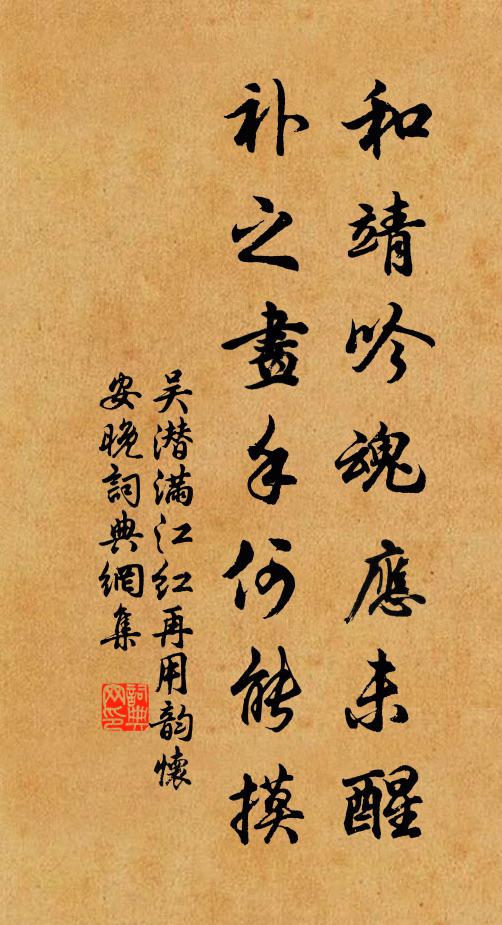 和靖吟魂應未醒
补之畫手何能摸
吴潜满江红再用韵懷
安晚詞典網集
詞典网印